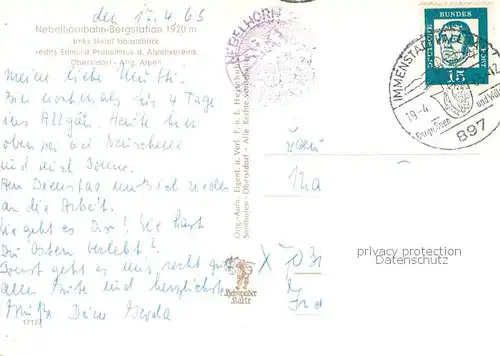 den 17.4.65
Nebelhornbahn-Bergstation 1920 m
links Hotel Höfatsblick
rechts Edmund Probsthaus d. Alpenvereins
Oberstdorf - Allg. Alpen
Meine liebe Mutti!
Bin nochmals für 4 Tage
ins Allgäu. Heute hier
oben bei viel Neuschnee
und viel Sonne.
Am Dienstag muß ich wieder
an die Arbeit.
Wie geht es Dir? Wie hast
Du Ostern verlebt?
Sonst geht es mir recht gut
alles Gute und herzlichste
Grüße Deine Gerda
17127
Orig.-Aufn. Eigent. u. Verl. F. u. E. Heimhuber
Sonthofen - Oberstdorf - Alle Rechte vorbehalten
NEBELHORN
Heimhuber
Karte
DEUTSCHE
BUNDES
POST
15
IMMENSTADT
19-4
Berge, Seen und
897
Frau
X 703
privacy protection
Datenschutz